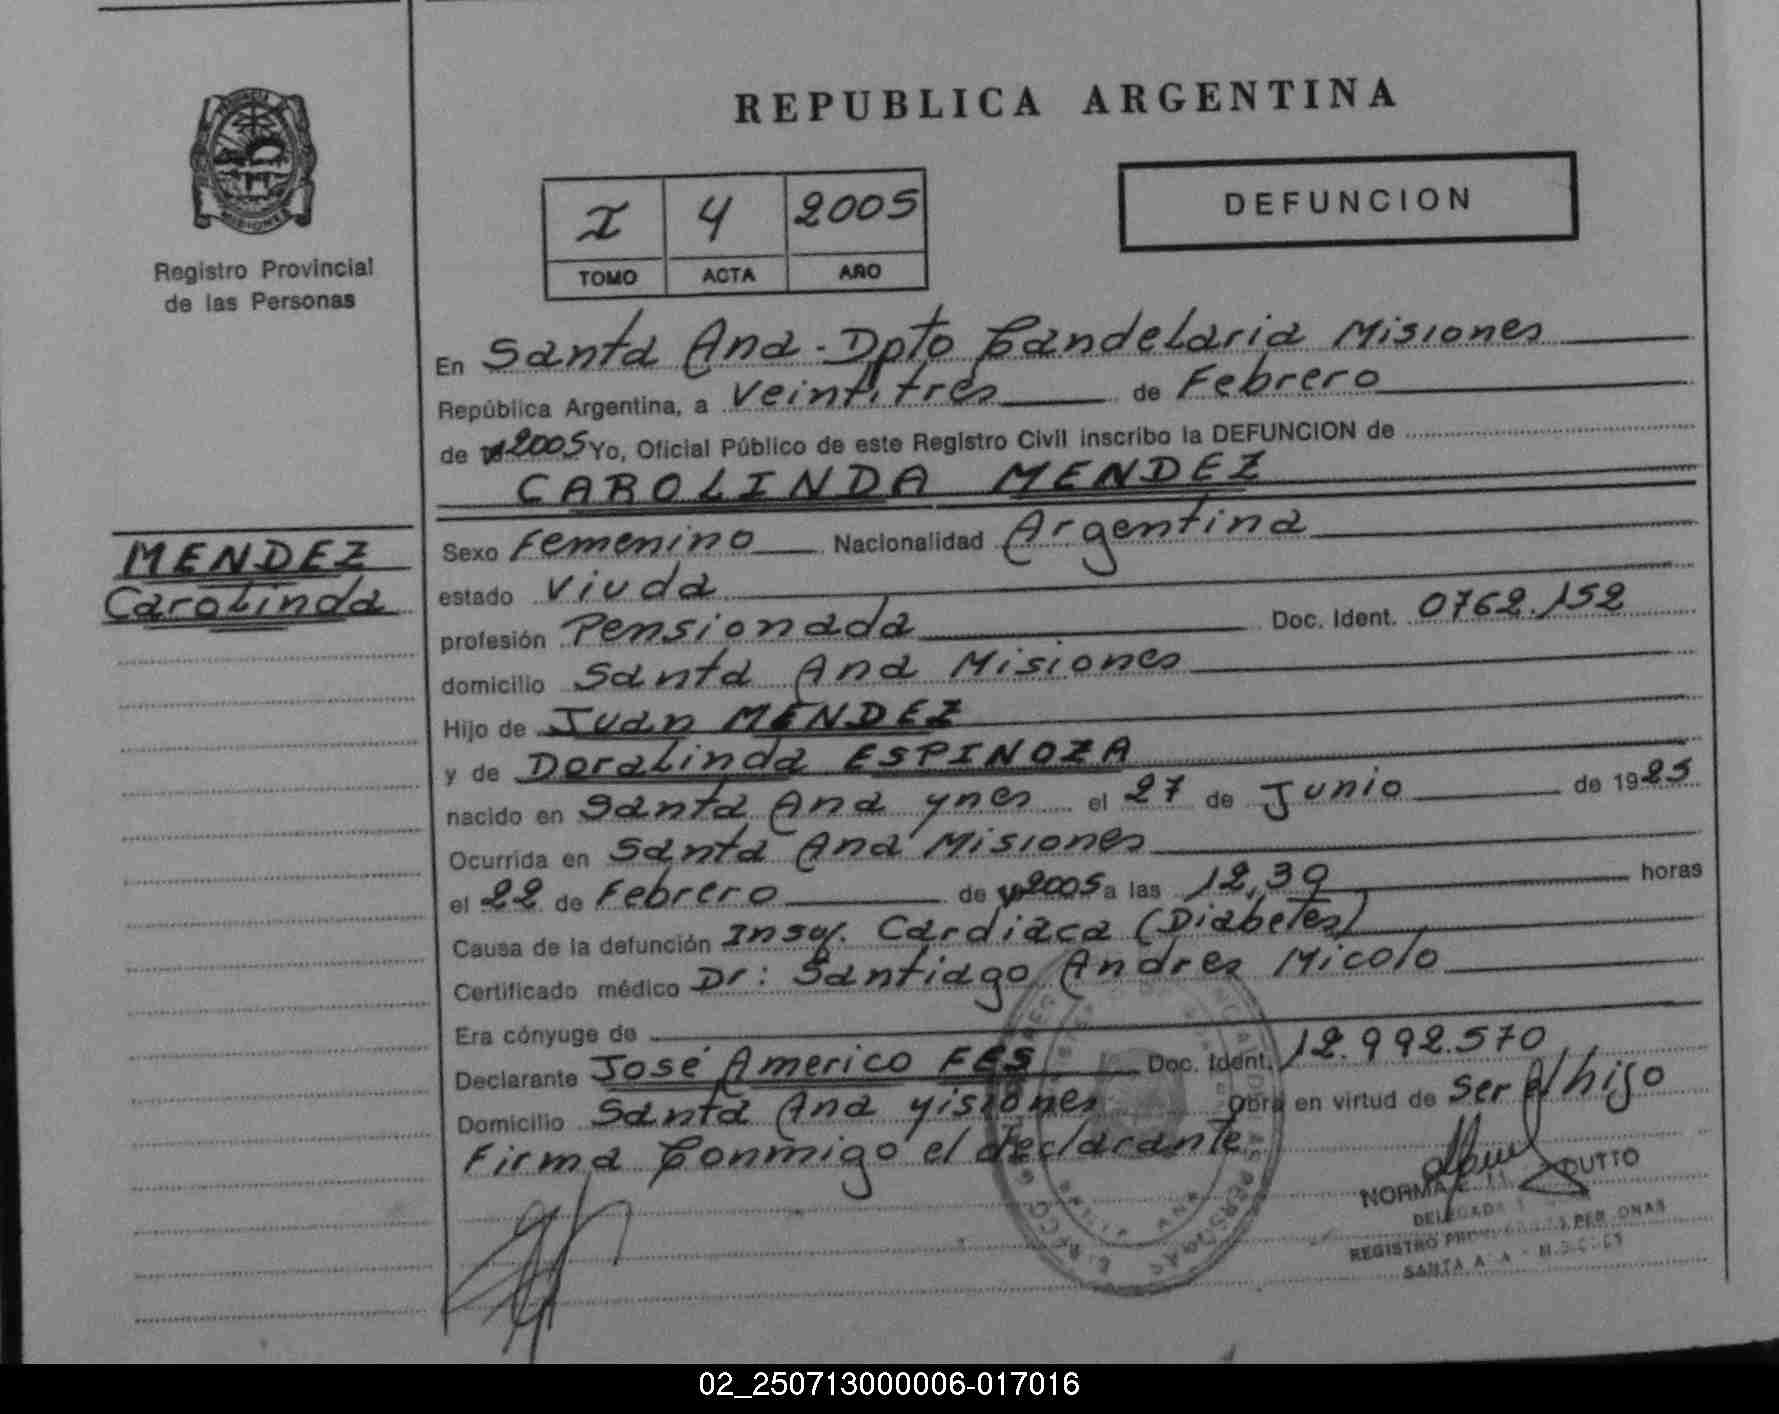 REPUBLICA ARGENTINA
I 4 2005
TOMO ACTA AÑO
DEFUNCION
PROVINCIA
MISIONES
Registro Provincial
de las Personas
MENDEZ
Carolinda
En Santa Ana - Dpto Candelaria Misiones
República Argentina, a Veintitres de Febrero
de 2005 Yo, Oficial Público de este Registro Civil inscribo la DEFUNCION de
CAROLINDA MENDEZ
Sexo Femenino Nacionalidad Argentina
estado Viuda
profesión Pensionada Doc. Ident. 0762.152
domicilio Santa Ana Misiones
Hijo de Juan MENDEZ
y de Doralinda ESPINOZA
nacido en Santa Ana ynes el 27 de Junio de 1925
Ocurrida en Santa Ana Misiones
el 22 de Febrero de 2005 a las 12,30 horas
Causa de la defunción Insuf. Cardiaca (Diabetes)
Certificado médico Dr: Santiago Andres Micolo
Era cónyuge de
Declarante José Americo FES Doc. Ident. 12.992.570
Domicilio Santa Ana Misiones Obra en virtud de Ser el hijo
Firma Conmigo el declarante
NORMA
DELEGADA
REGISTRO
SANTA
02_250713000006-017016